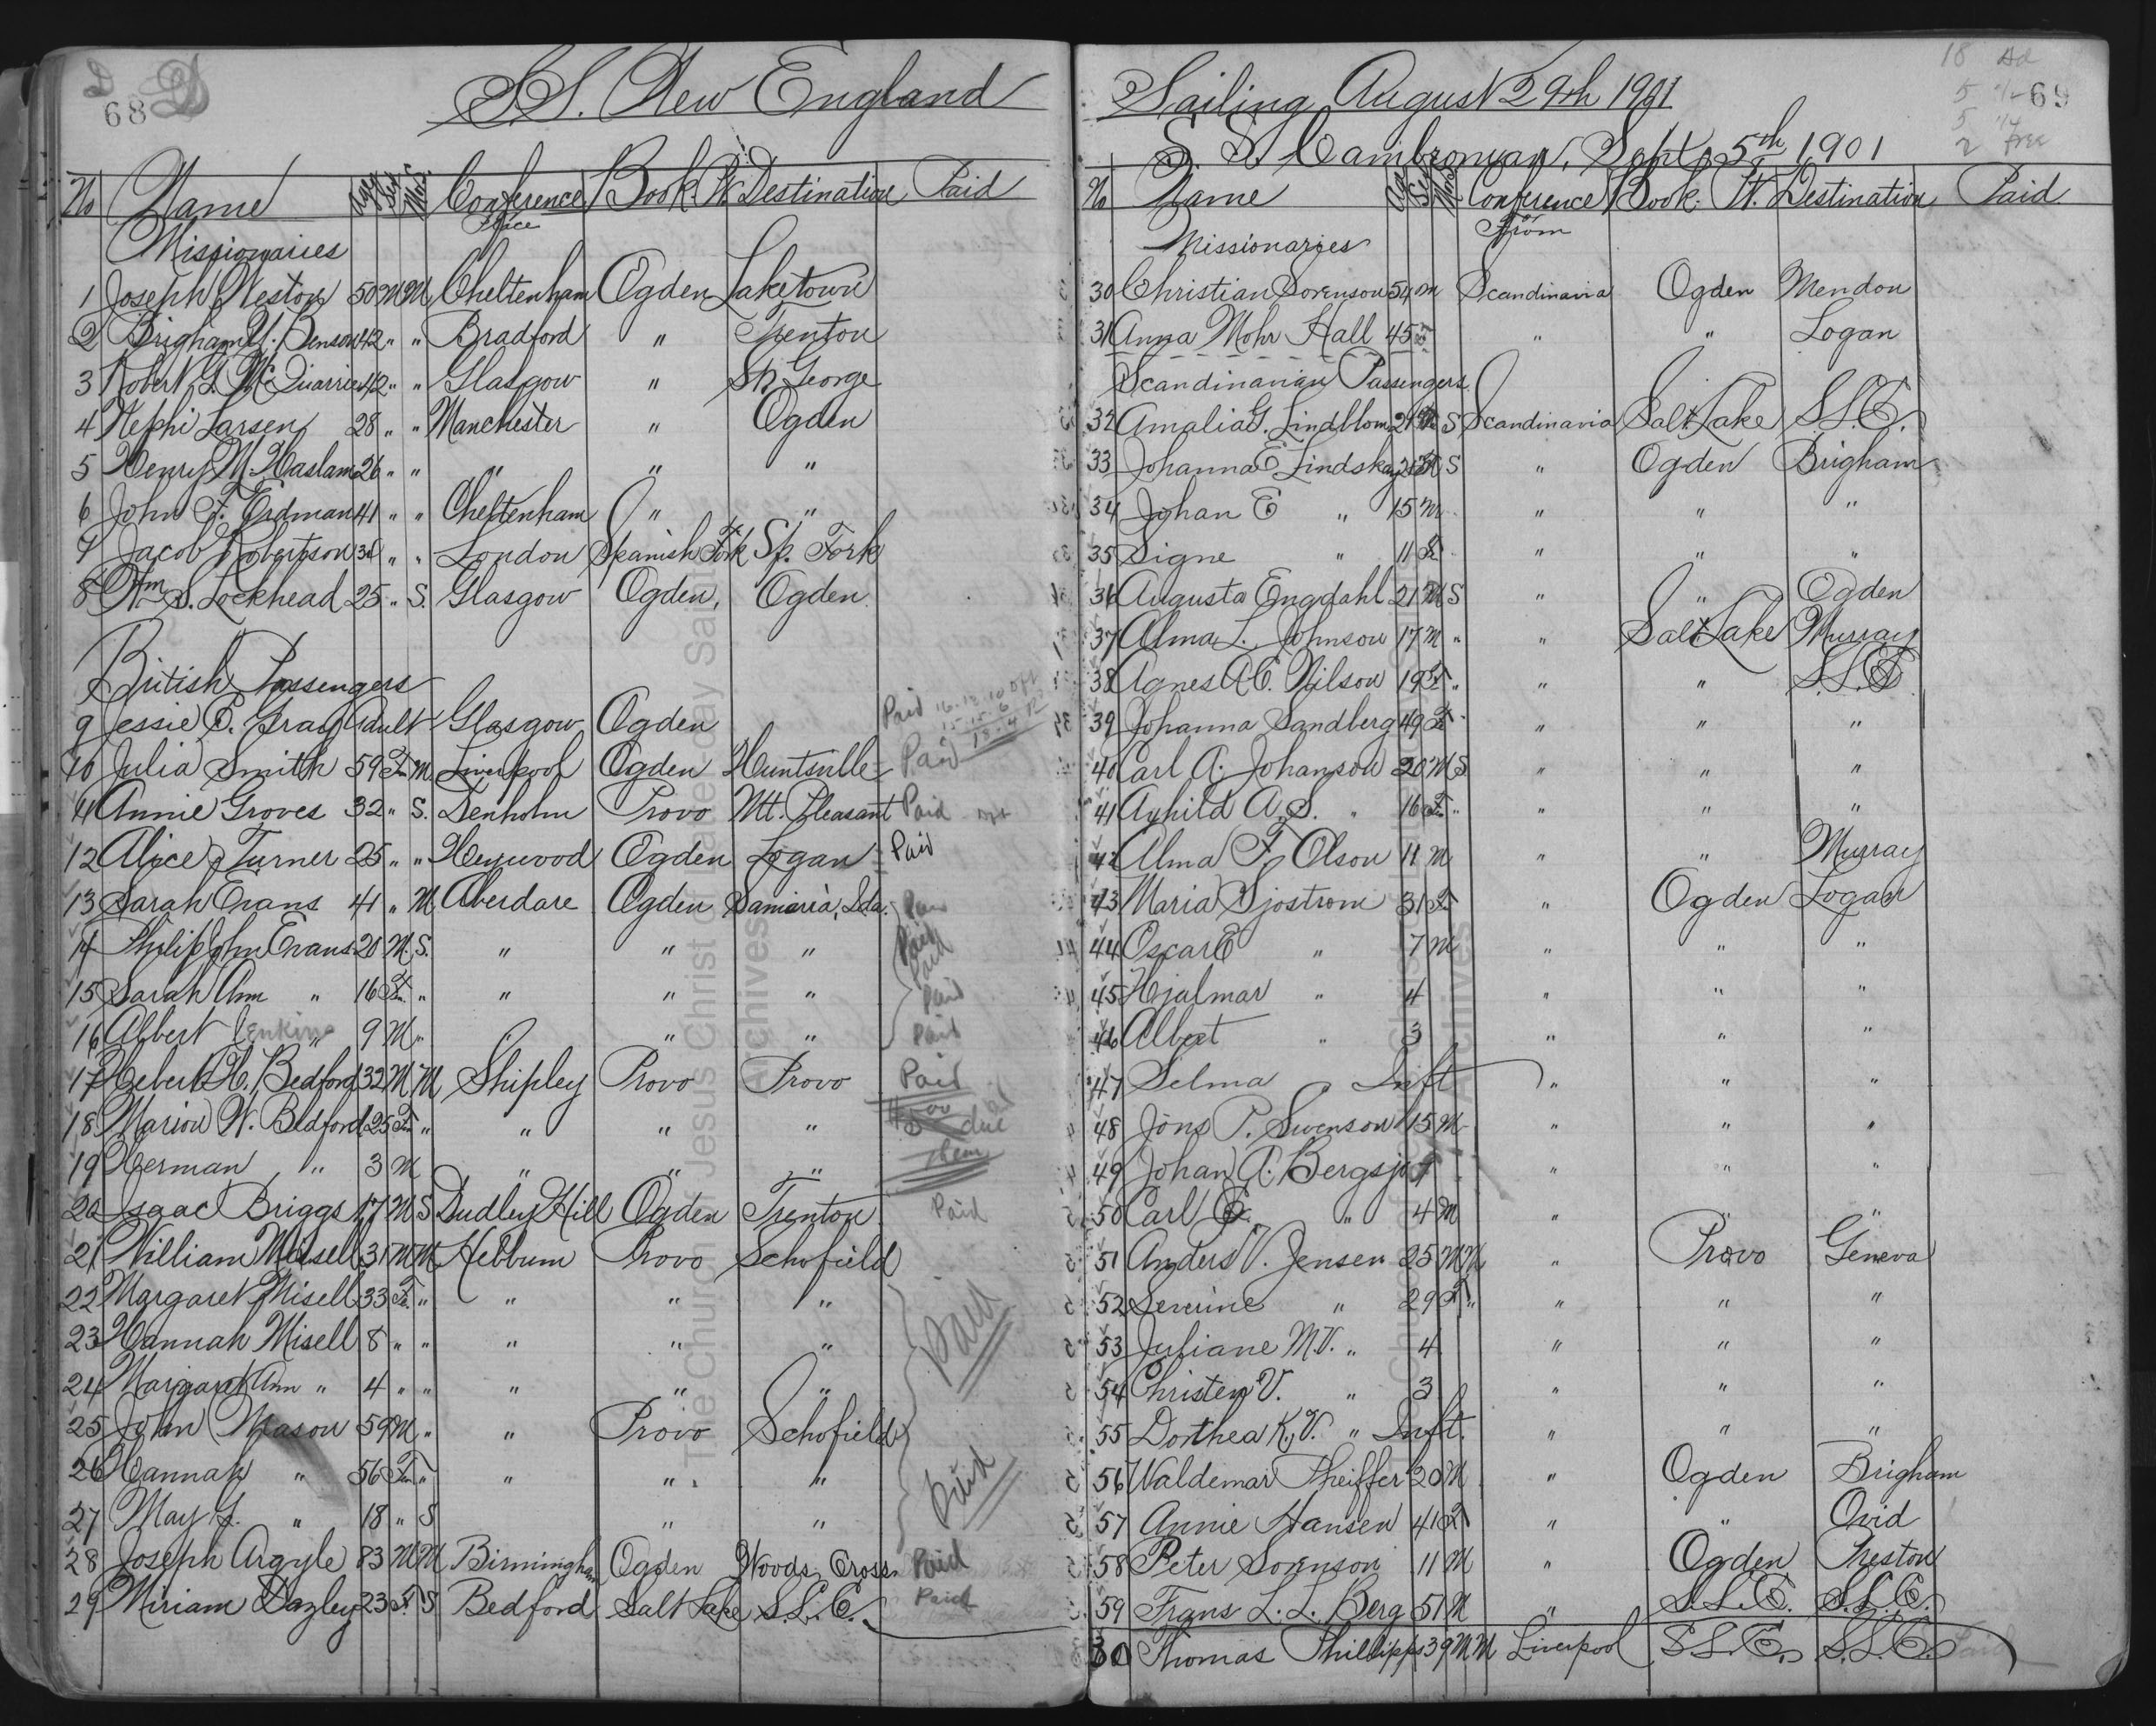 68
S.S. New England
No Name Age Sex M.S. Conference Book. Pt. Destination Paid
Place
Missionaries
1 Joseph Weston 50 M M Cheltenham Ogden Laketown
2 Brigham Y. Benson 42 " " Bradford " Trenton
3 Robert G. McQuarrie 42 " " Glasgow " St. George
4 Nephi Larsen 28 " " Manchester " Ogden
5 Henry M. Haslam 26 " " " " "
6 John F. Erdman 41 " " Cheltenham " "
7 Jacob Robertson " " London Spanish Fork Sp. Fork
8 Wm S. Lockhead 25 " S. Glasgow Ogden, Ogden
British Passengers
9 Jessie E. Gray Adult Glasgow Ogden Paid
10 Julia Smith 59 F. M. Liverpool Ogden Huntsville Paid
11 Annie Groves 32 " S. Denholm Provo Mt. Pleasant Paid
12 Alice Turner 25 " " Heywood Ogden Logan Paid
13 Sarah Evans 41 " M. Aberdare Ogden Samaria, Ida. Paid
14 Philip John Evans 20 M. S. " " " Paid
15 Sarah Ann " 16 F. " " " " Paid
16 Albert Jenkins " 9 M " " " Paid
17 Hebert H. Bedford 32 M M Shipley Provo Provo Paid
18 Marion W. Bedford 25 F. " " " " due
19 Herman " 3 M " " " them
20 Isaac Briggs 17 M S Dudley Hill Ogden Trenton Paid
21 William Misell 31 M M Hebburn Provo Schofield
22 Margaret Misell 33 F. " " " "
23 Hannah Misell 8 " " " " " Paid
24 Margaret Ann " 4 " " " " "
25 John Mason 59 M " " Provo Schofield
26 Hannah " 56 F. " " " " Paid
27 May J. " 18 " S " "
28 Joseph Argyle 83 M M Birmingham Ogden Woods Cross Paid
29 Miriam Dazley 23 F. S Bedford Salt Lake S.L.C. Paid
18 Ad
5
5
2 free
69
Sailing August 29th 1901
S.S. Cambroman, Sept. 5th 1901
No Name Conference Book. Pt. Destination Paid
From
Missionaries
30 Christian Sorenson 54 m Scandinavia Ogden Mendon
31 Anna Mohr Hall 45 F " " Logan
Scandinavian Passengers
32 Amalia G. Lindblom 21 S Scandinavia Salt Lake S.L.C.
33 Johanna E Lindskog S " Ogden Brigham
34 Johan E " 15 m " " "
35 Signe " 11 F " " "
36 Augusta Engdahl 21 M S " " Ogden
37 Alma L. Johnson 17 M " " Salt Lake Murray
38 Agnes A.C. Nilson 19 F. " " " S.L.C.
39 Johanna Sandberg 49 F. " " "
40 Carl A. Johanson 20 M S " " "
41 Ayhild A.S. " 16 F. " " " "
42 Alma F. Olson 11 M " " Murray
43 Maria Sjostrom 31 F. " Ogden Logan
44 Oscar E " 7 M " " "
45 Hjalmar " 4 " " "
46 Albert " 3 " " "
47 Selma " Inft " " "
48 Jöns P. Swenson 15 M " " "
49 Johan A. Bergsjo " " "
50 Carl E. " 4 M " " "
51 Anders V. Jensen 25 M M " Provo Geneva
52 Severine " 29 F " " " "
53 Juliane M.V. " 4 " " "
54 Christen V. " 3 " " "
55 Dorthea K.V. " Inft. " " "
56 Valdemar Pheiffer 20 M " Ogden Brigham
57 Annie Hansen 41 F " " Ovid
58 Peter Sorenson 11 M " Ogden Preston
59 Frans L. L. Berg 51 M " S.L.C. S.L.C.
60 Thomas Phillipps 39 M M Liverpool S.L.C. S.L.C. Paid
The Church of Jesus Christ of Latter-day Saints
Archives